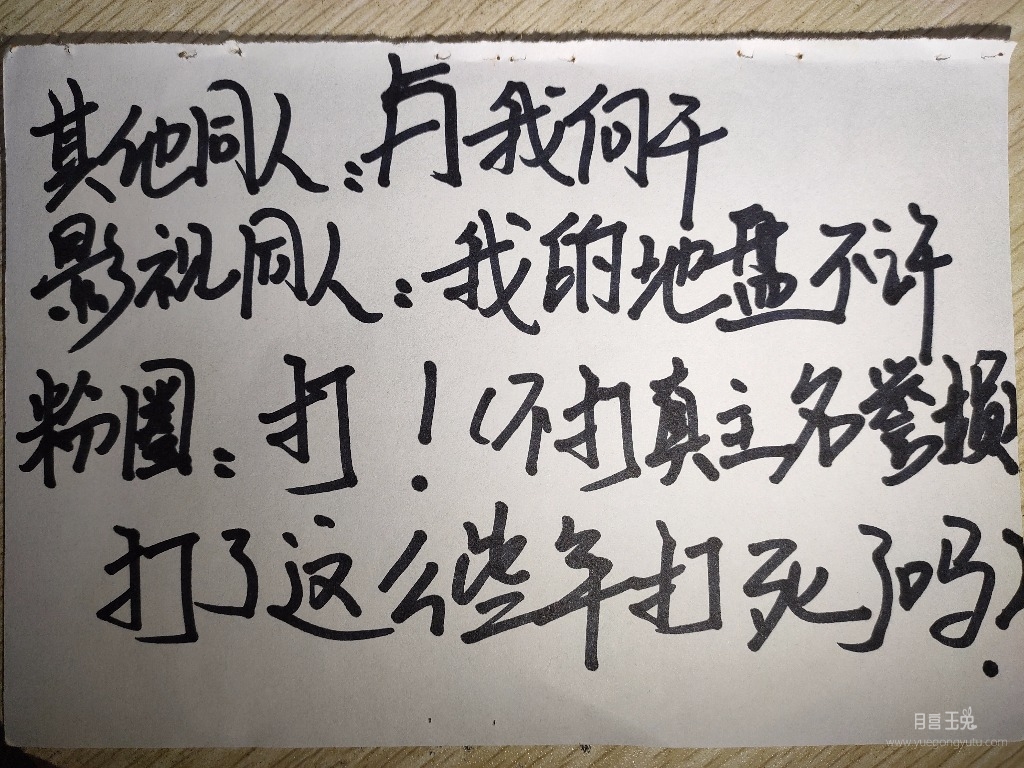 其他同人:与我何干
影视同人:我的地盘不许
粉圈:打!(不打真主名誉损
打了这么些年打死了吗?
月宫玉兔
www.yuegongyutu.com